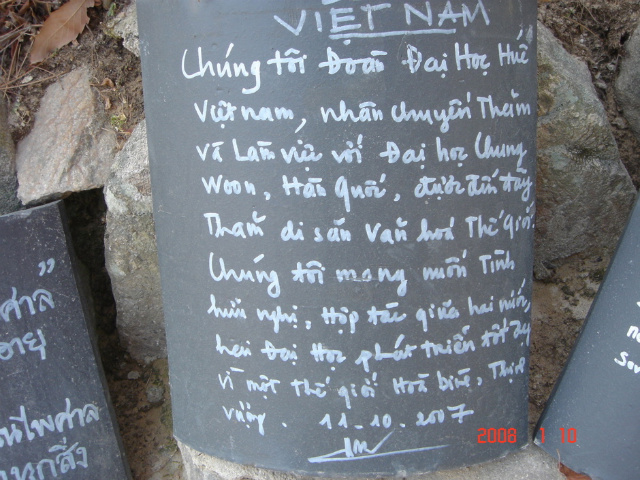 VIỆT NAM
Chúng tôi Đoàn Đại Học Huế
Việt nam, nhân chuyến Thăm
và Làm việc với Đại học Chung
Woon, Hàn Quốc, được đến đây
Thăm di sản Văn hoá Thế giới.
Chúng tôi mong muốn Tình
hữu nghị, Hợp tác giữa hai nước,
hai Đại Học phát triển tốt đẹp
vì một thế giới Hoà bình, Thịnh
vượng. 11-10-2007
ศาล"
อายุ
นไพศาล
2008 1 10